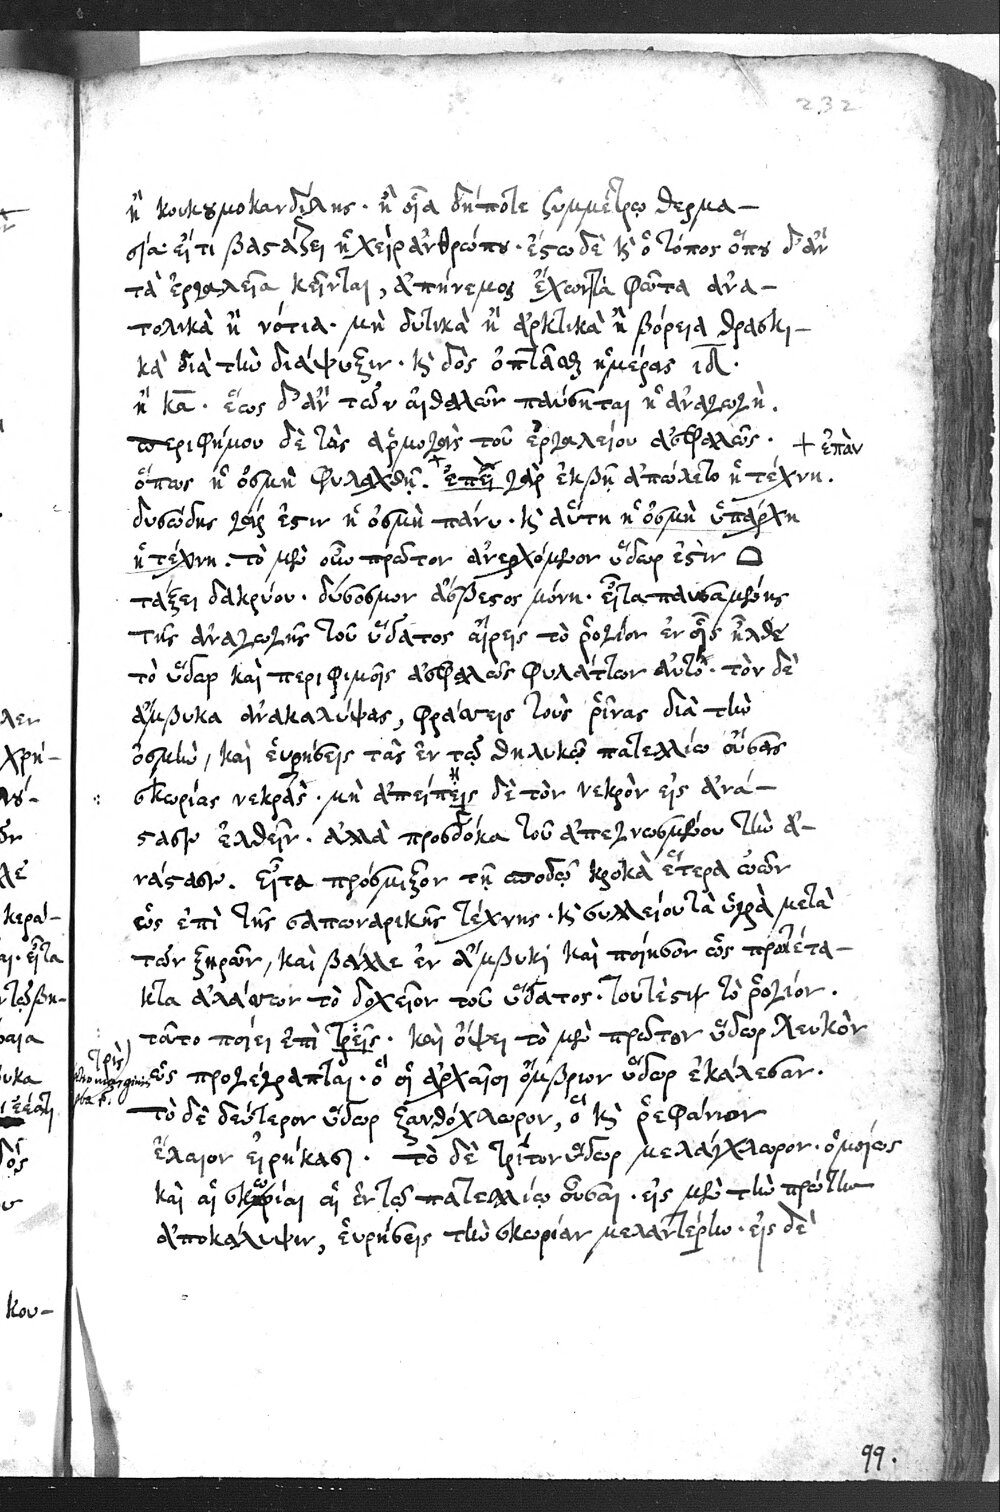 232
ἢ κουκουμοκανδήλης· ἢ οἵα δήποτε συμμέτρῳ θερμα-
σία· εἴ τι βαστάζει ἡ χεὶρ ἀνθρώπου· ἔστω δὲ καὶ ὁ τόπος ὅπου δ' ἂν
τὰ ἐργαλεῖα κεῖνται, ἀπήνεμος ἔχων τὰ φῶτα ἀνα-
τολικὰ ἢ νότια· μὴ δυτικὰ ἢ ἀρκτικὰ ἢ βόρεια θρασκι-
κὰ διὰ τὴν διάψυξιν· καὶ δὸς ὀπτᾶσθαι ἡμέρας ιδ·
ἢ κα· ἕως δ' ἂν τῶν αἰθαλῶν παύσηται ἡ ἀναγωγὴ.
περιφήμου δὲ τὰς ἁρμογὰς τοῦ ἐργαλείου ἀσφαλῶς·
+ ἐπὰν
ὅπως ἡ ὀσμὴ φυλαχθῇ. + ἐπεὶ γὰρ ἐκβῇ ἀπώλετο ἡ τέχνη.
δυσώδης γάρ ἐστιν ἡ ὀσμὴ πάνυ· καὶ αὕτη ἡ ὀσμὴ ὑπάρχη
ἡ τέχνη. τὸ μὲν οὖν πρῶτον ἀνερχόμενον ὕδωρ ἐστὶν
τάξει δακρύου· δύσοσμον ἄσβεστος μόνη· εἶτα παυσαμένης
τῆς ἀναγωγῆς τοῦ ὕδατος αἴρεις τὸ ῥογίον ἐν οἷς ἦλθε
τὸ ὕδωρ καὶ περιφιμοῖς ἀσφαλῶς φυλάττων αὐτό· τὸν δὲ
ἄμβυκα ἀνακαλύψας, φράττεις τοὺς ῥῖνας διὰ τὴν
ὀσμὴν, καὶ εὑρήσεις τὰς ἐν τῷ θηλυκῷ πατελλίῳ οὔσας
σκωρίας νεκρὰς· μὴ ἀπείπεις δὲ τὸν νεκρὸν εἰς ἀνά-
στασιν ἐλθεῖν· ἀλλὰ προσδόκα τοῦ ἀπεγνωσμένου τὴν ἀ-
νάστασιν. εἶτα πρόσμιξον τῇ σποδῷ κροκὰ ἕτερα ὠῶν
ὡς ἐπὶ τῆς σαπωναρικῆς τέχνης· καὶ συλλείου τὰ ὑγρὰ μετὰ
τῶν ξηρῶν, καὶ βάλλε ἐν ἄμβυκι καὶ ποίησον ὡς προτέτα-
κται ἀλάττων τὸ δοχεῖον τοῦ ὕδατος· τουτέστιν τὸ ῥογίον.
τοῦτο ποίει ἐπὶ τρεῖς· καὶ ὄψει τὸ μὲν πρῶτον ὕδωρ λευκὸν
τρὶς
ὡς προγέγραπται· ὃ οἱ ἀρχαῖοι ὄμβριον ὕδωρ ἐκάλεσαν·
τὸ δὲ δεύτερον ὕδωρ ξανθόχλωρον, ὃ καὶ ῥεφάνιον
ἔλαιον εἰρήκασι· τὸ δὲ τρίτον ὕδωρ μελάγχλωρον· ὁμοίως
καὶ αἱ σκωρίαι αἱ ἐν τῷ πατελλίῳ οὖσαι· εἰς μὲν τὴν πρώτην
ἀποκάλυψιν, εὑρήσεις τὴν σκωρίαν μελαντέρην· εἰς δὲ
99.